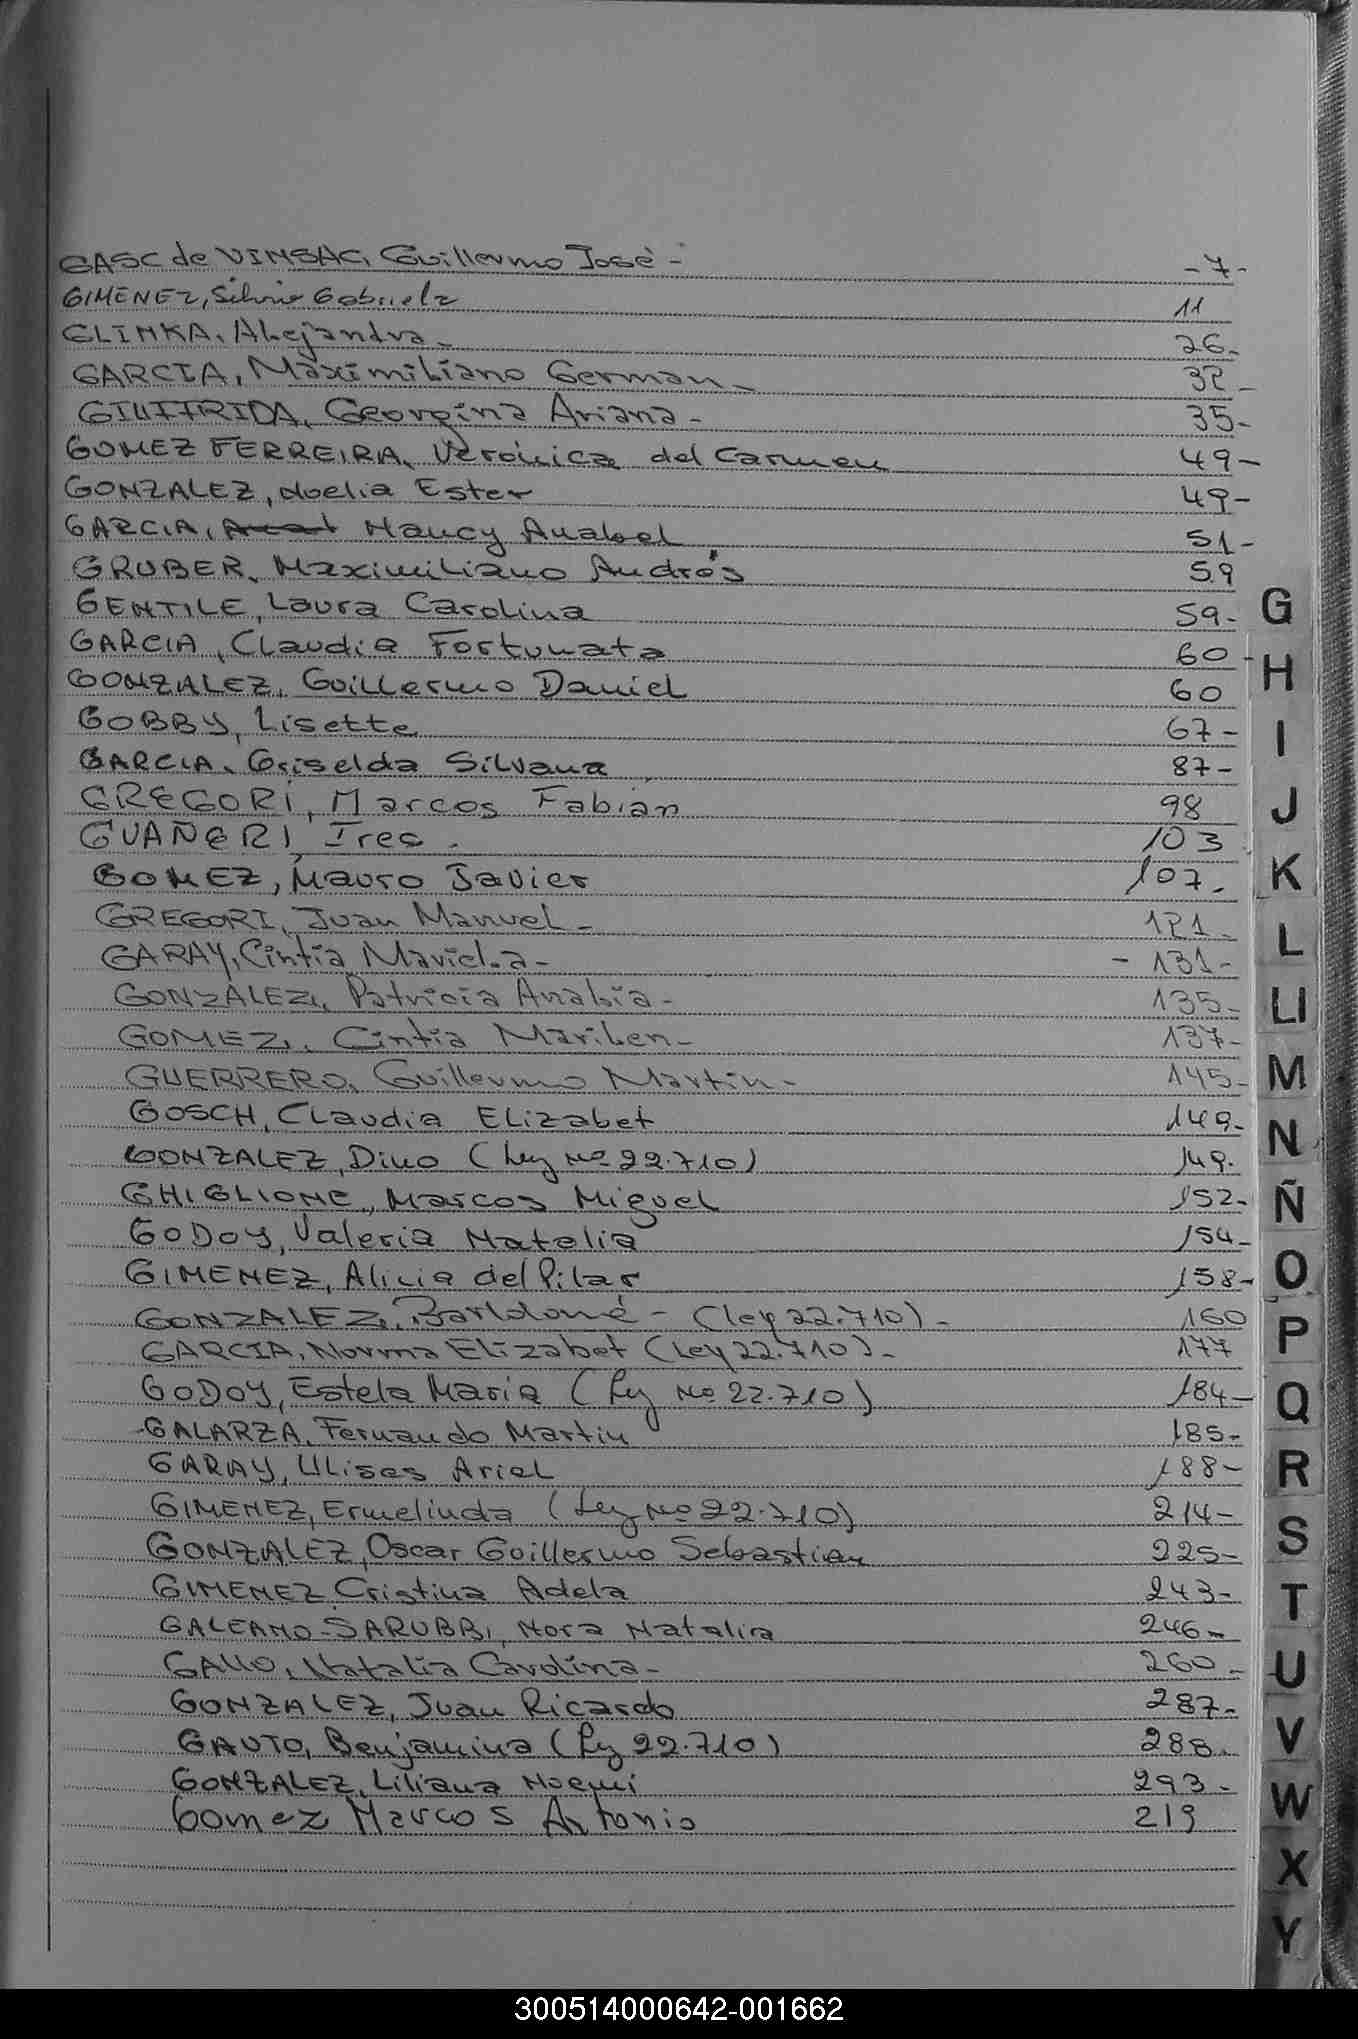 GASC de VINSAC, Guillermo José - -7-
GIMENEZ, Silvia Gabriela 11
GLINKA, Alejandra- 26-
GARCIA, Maximiliano German- 32-
GIUFFRIDA, Georgina Ariana- 35-
GOMEZ FERREIRA, Verónica del Carmen 49-
GONZALEZ, Noelia Ester 49-
GARCIA, Nancy Anabel 51-
GRUBER, Maximiliano Andrés 59
GENTILE, Laura Carolina 59-
GARCIA, Claudia Fortunata 60-
GONZALEZ, Guillermo Daniel 60
GOBBY, Lisette 67-
GARCIA, Griselda Silvana 87-
GREGORI, Marcos Fabián 98
GUAÑERI, 103
GOMEZ, Mauro Javier 107-
GREGORI, Juan Manuel- 121-
GARAY, Cintia Mariela- -131-
GONZALEZ, Patricia Analia- 135-
GOMEZ, Cintia Marilen- 137-
GUERRERO, Guillermo Martin- 145-
GOSCH, Claudia Elizabet 149-
GONZALEZ, Dino (Ley Nº 22.710) 149-
GHIGLIONE, Marcos Miguel 152-
GODOY, Valeria Natalia 154-
GIMENEZ, Alicia del Pilar 158-
GONZALEZ, Bartolomé - (Ley 22.710)- 160
GARCIA, Norma Elizabet (Ley 22.710)- 177
GODOY, Estela Maria (Ley Nº 22.710) 184-
GALARZA, Fernando Martin 185-
GARAY, Ulises Ariel 188-
GIMENEZ, Ermelinda (Ley Nº 22.710) 214-
GONZALEZ, Oscar Guillermo Sebastian 225-
GIMENEZ Cristina Adela 243-
GALEANO-SARUBBI, Nora Natalia 246-
GALLO, Natalia Carolina- 260-
GONZALEZ, Juan Ricardo 287-
GAUTO, Benjamina (Ley 22.710) 288-
GONZALEZ, Liliana Noemi 293-
Gomez Marcos Antonio 219
G
H
I
J
K
L
Ll
M
N
Ñ
O
P
Q
R
S
T
U
V
W
X
Y
300514000642-001662